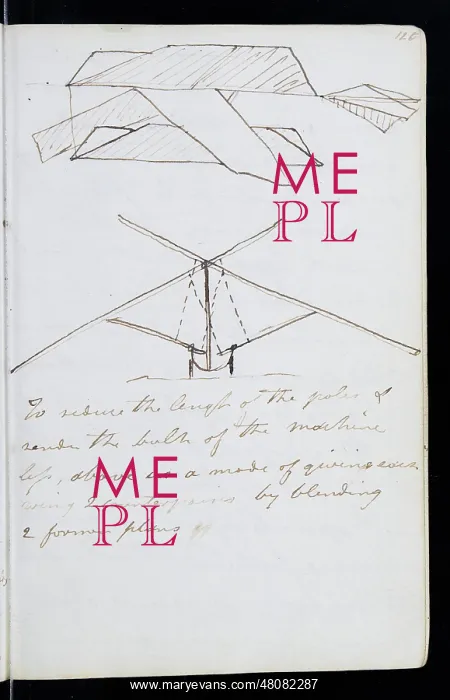 ME
PL
To reduce the length of the poles &
render the bulk of the machine
less, above is a mode of giving each
wing 2 by blending
ME
PL
2 former plans
www.maryevans.com/48082287